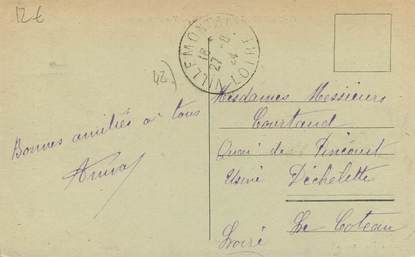 12 €
42)
VILLEMONTAIS (LOIRE)
18
27 - 8
24
Bonnes amitiés à tous
Mesdames Messieurs
Courtaud
Quai de Pincourt
Usine Déchelette
Le Coteau
Loire